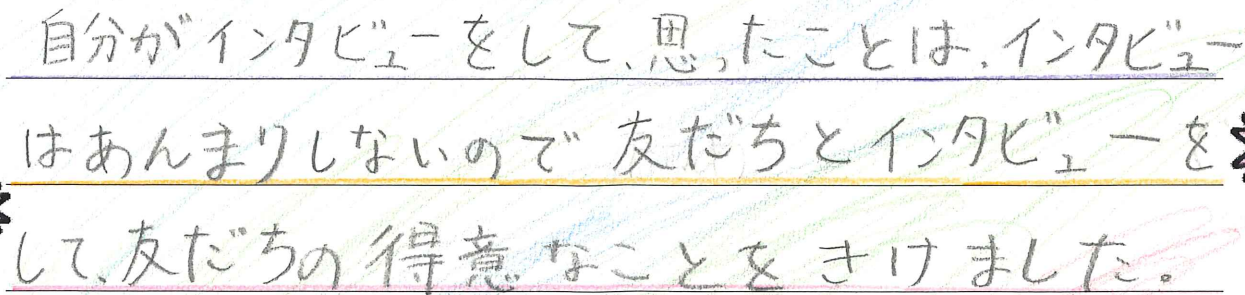 自分がインタビューをして、思ったことは、インタビュー
はあんまりしないので友だちとインタビューを
して、友だちの得意なことをきけました。